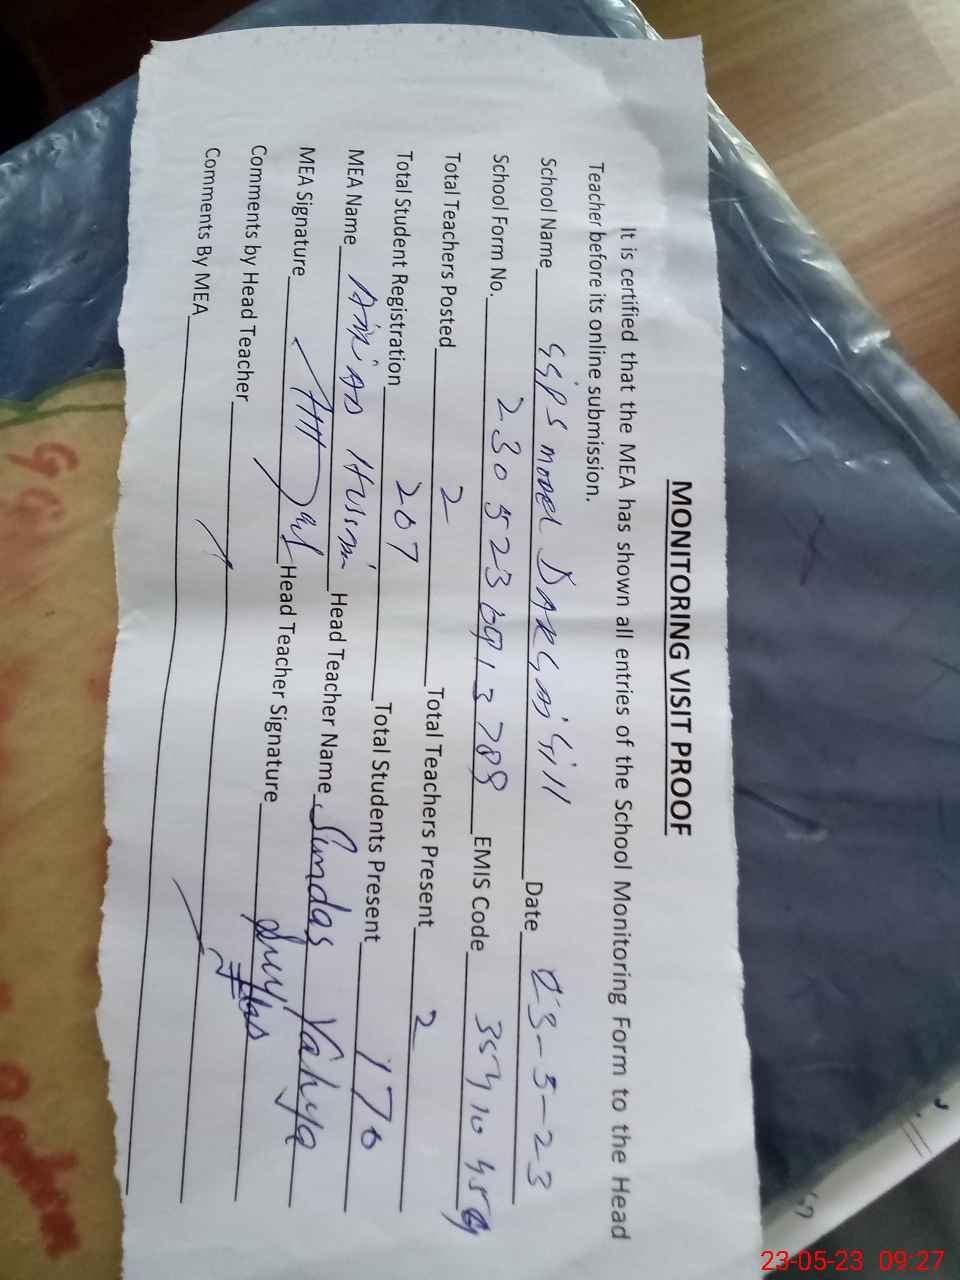 MONITORING VISIT PROOF
It is certified that the MEA has shown all entries of the School Monitoring Form to the Head
Teacher before its online submission.
School Name GGPS model DARGAI Gill Date 23-5-23
School Form No. 2305236913789 EMIS Code 35410459
Total Teachers Posted 2 Total Teachers Present 2
Total Student Registration 207 Total Students Present 170
MEA Name Head Teacher Name Sundas Yahya
MEA Signature Head Teacher Signature
Comments by Head Teacher
Comments By MEA
23-05-23 09:27